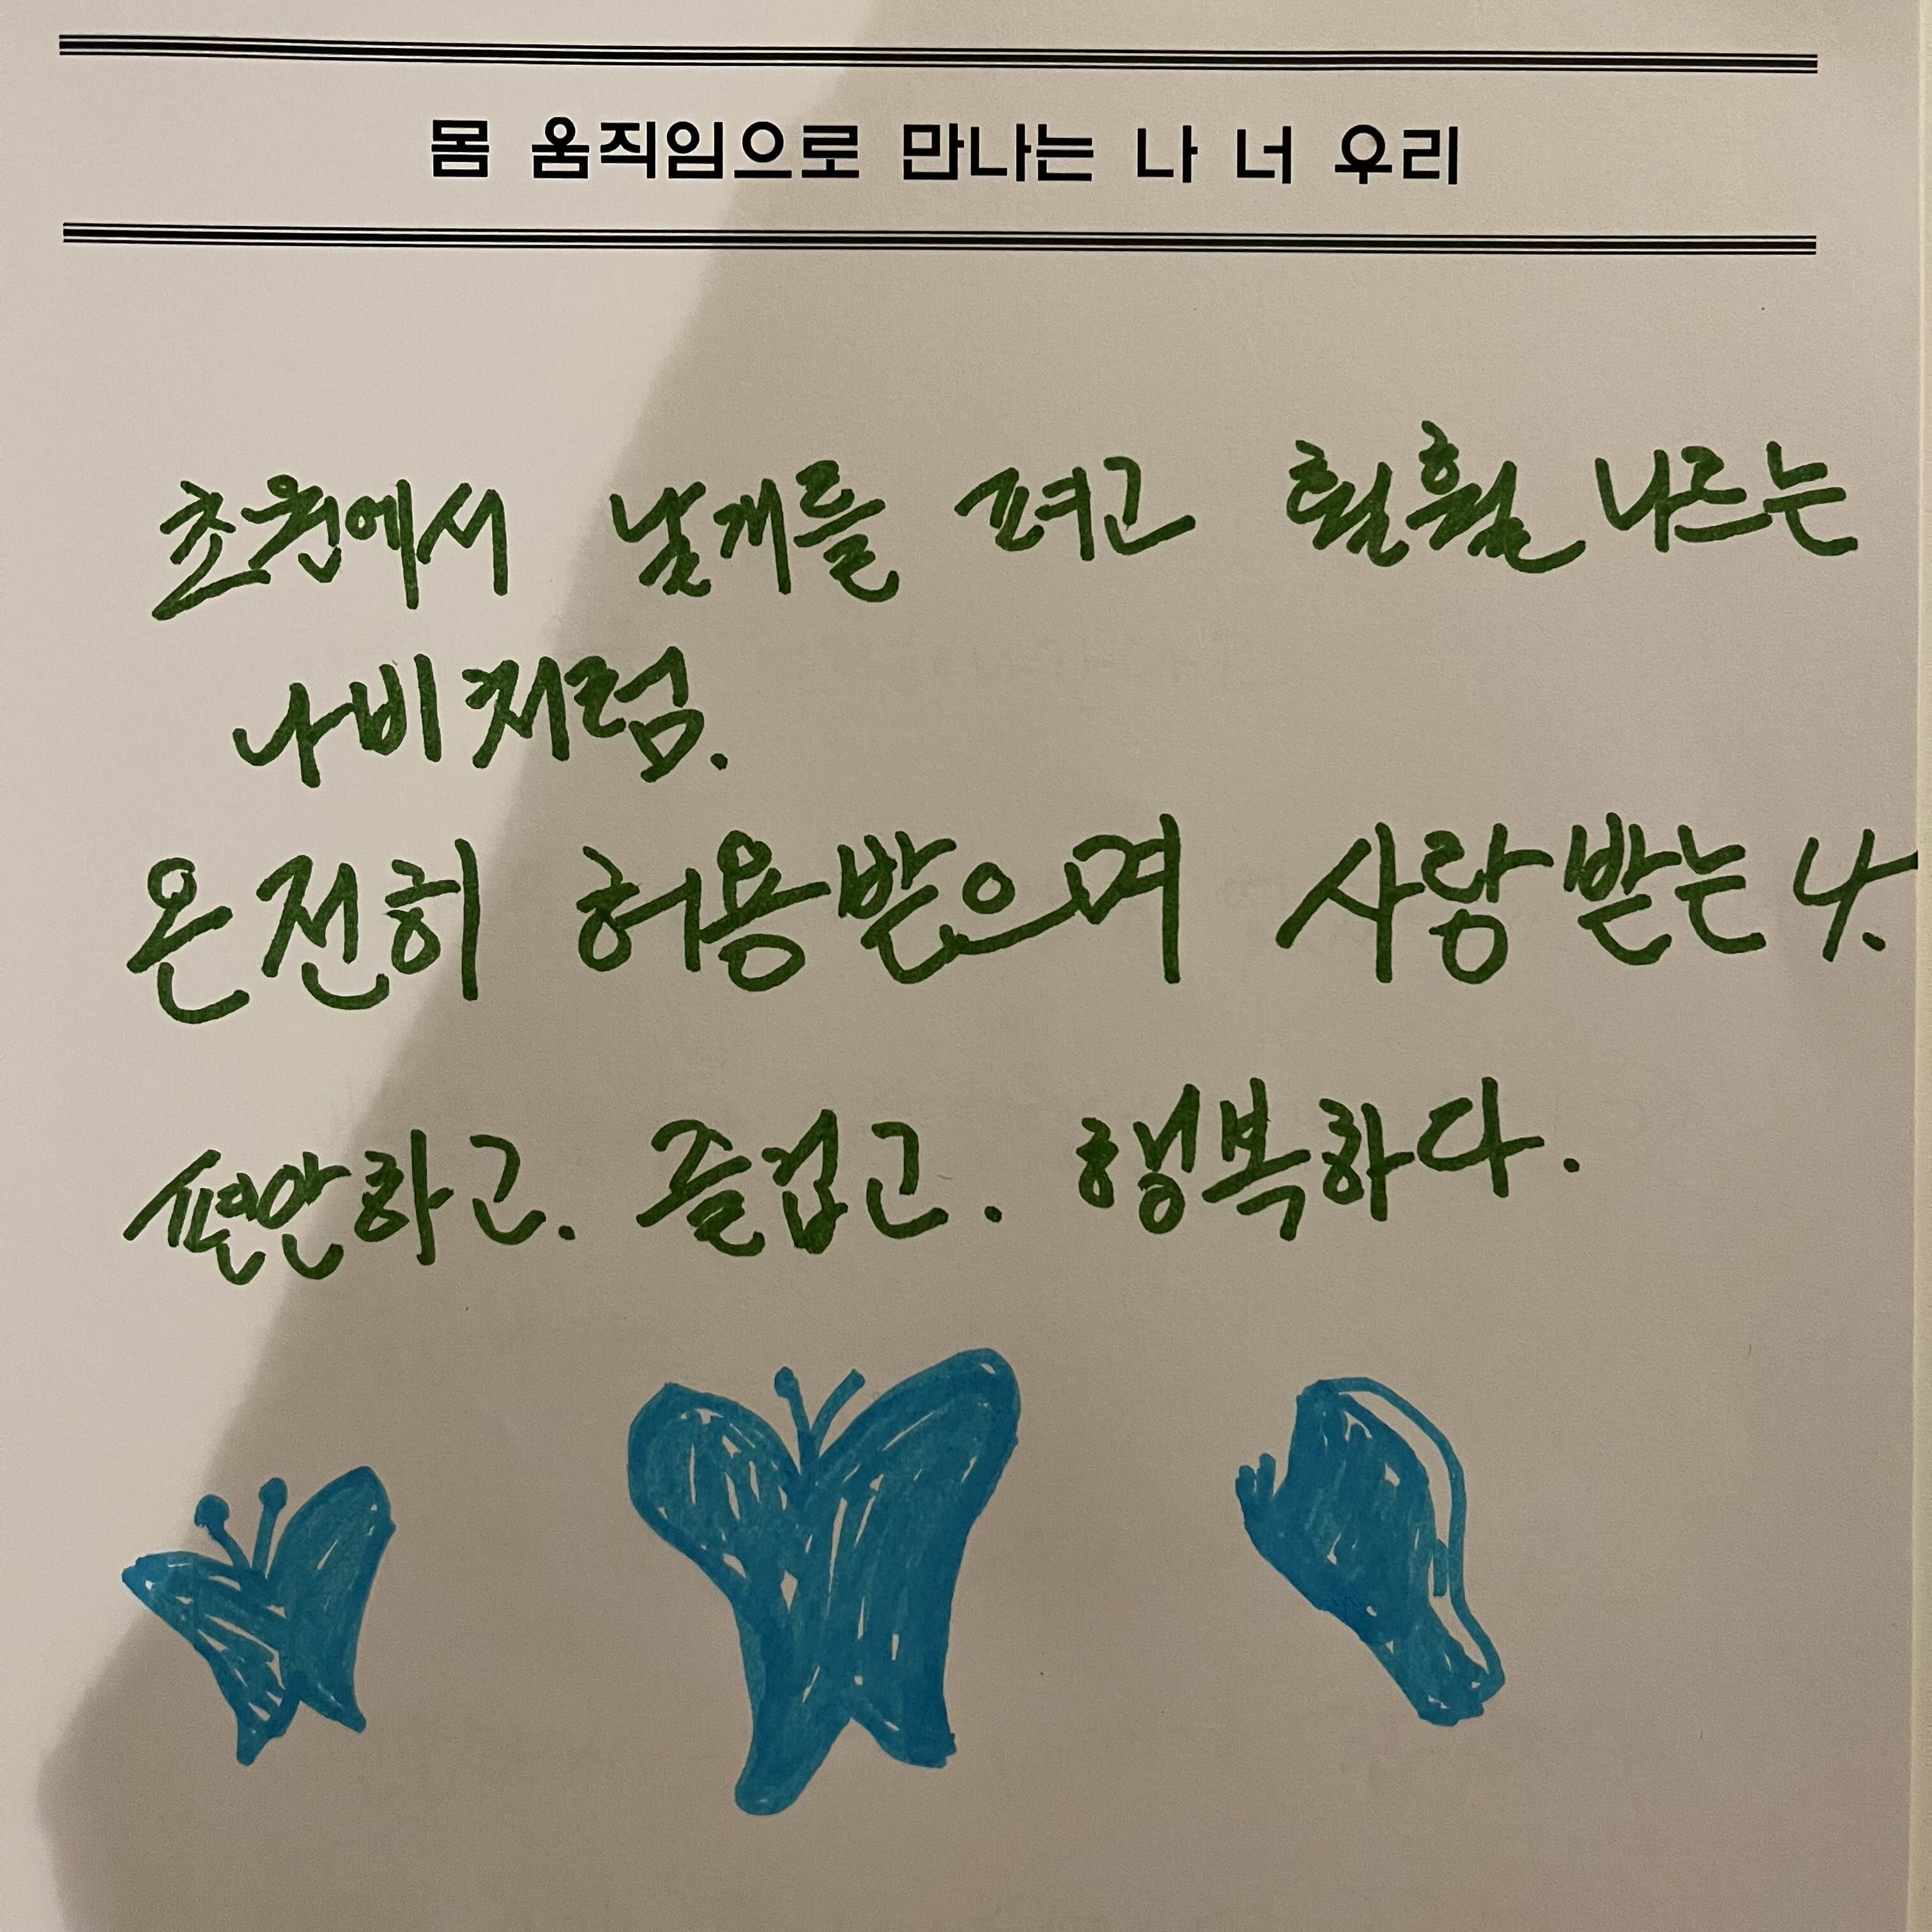 몸 움직임으로 만나는 나 너 우리
초원에서 날개를 펴고 훨훨 나르는
나비처럼.
온전히 허용받으며 사랑받는 나.
편안하고. 즐겁고. 행복하다.